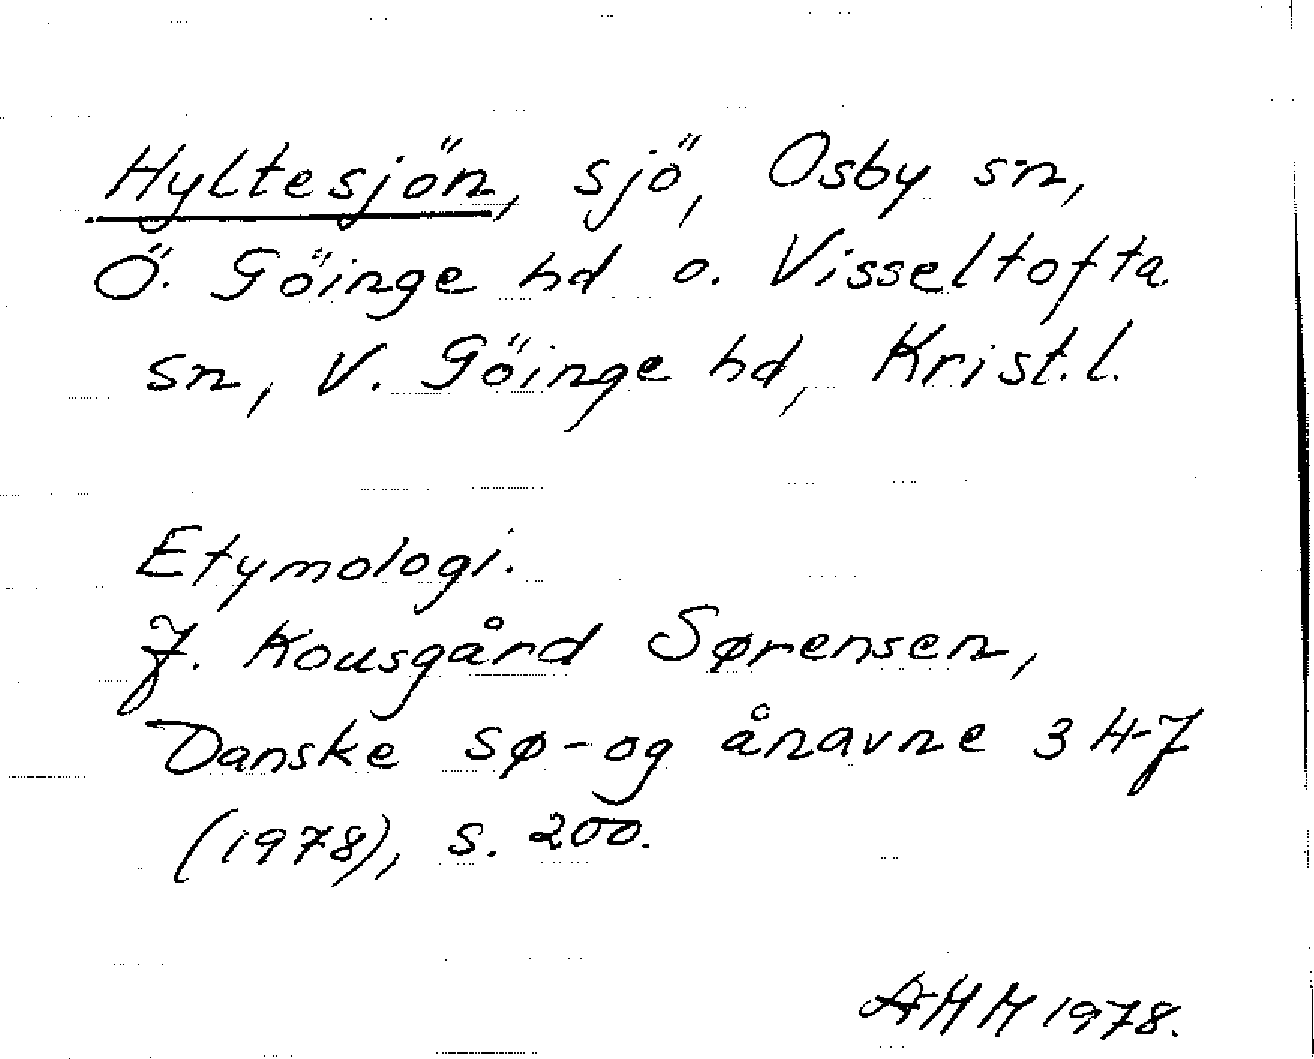 Hyltesjön, sjö, Osby sn,
Ö. Göinge hd o. Visseltofta
sn, V. Göinge hd, Krist.l.
Etymologi.
J. Kousgård Sørensen,
Danske sø- og ånavne 3 H-J
(1978), s. 200.
AHM 1978.